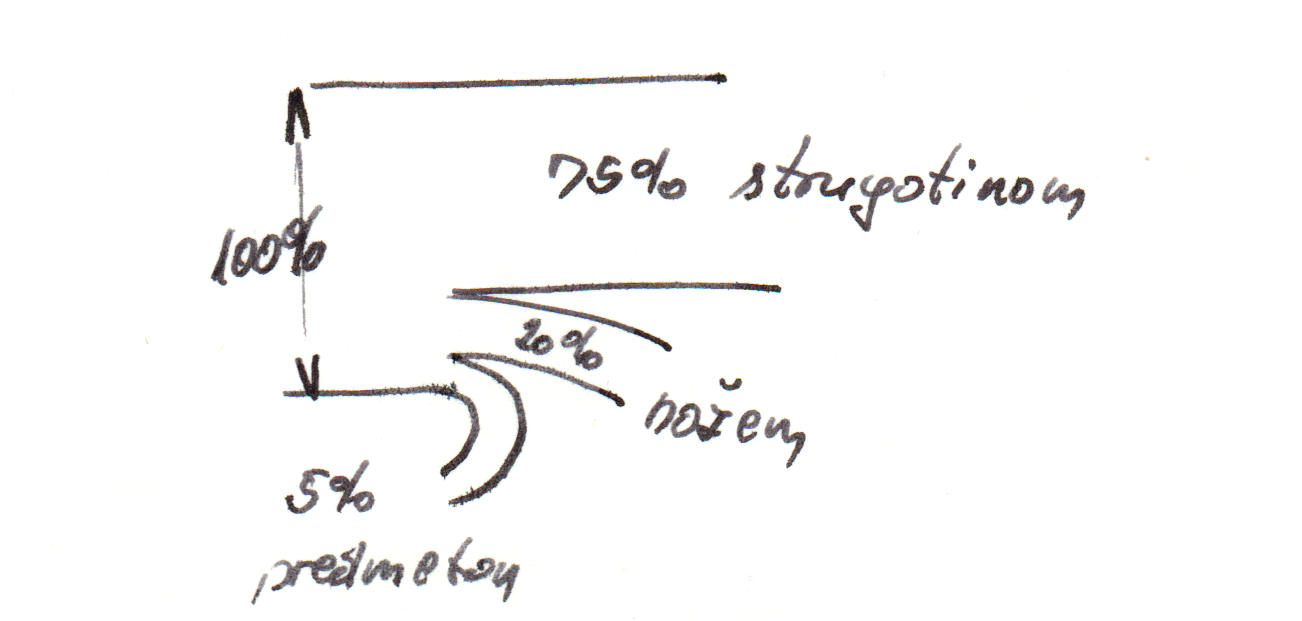 75% strugotinom
100%
20%
nožem
5%
predmetom